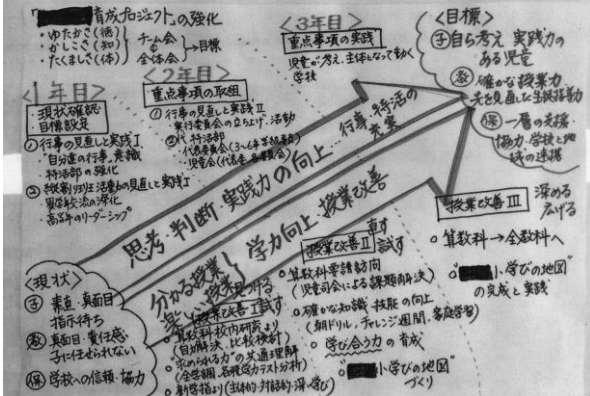 育成プロジェクト」の強化
・ゆたかさ(徳)
・かしこさ(知)
・たくましさ(体)
チーム会
全体会
→目標
<1年目>
現状確認
目標設定
①行事の見直しと実践Ⅰ
・自分達の行事、意識
・特活部の強化
②縦割り班活動の見直しと実践Ⅰ
・異学年交流の深化
・高学年のリーダーシップ
<2年目>
重点事項の取組
①行事の見直しと実践Ⅱ
・実行委員会の立ち上げ、活動
・特活部
・代表委員会(3~6年
児童会(代表委、各委員会)
<3年目>
重点事項の実践
児童が考え、主体となって動く
学校
<目標>
子 自ら考え 実践力の
ある児童
教 確かな授業力
先を見通した
保 一層の支援・
協力、学校と地
域の連携
行事・特活の
充実
思考・判断・実践力の向上
学力向上・授業改善
分かる授業
<現状>
子 素直・真面目
指示待ち
教 真面目・責任感
子に任せられない
保 学校への信頼・協力
見つける
授業改善Ⅰ 試す
・算数科校内研究より
(自力解決・比較検討)
・"求められる力"の共通理解
(全学調、各種学力テスト分析)
・新学指より(主体的・対話的・深い学び)
直す
授業改善Ⅱ 試す
○算数科要請訪問
(児童司会による課題解決)
○確かな知識・技能の向上
(朝ドリル、チャレンジ週間、家庭学習)
○学び合う力の育成
○"小学びの地図"
づくり
授業改善Ⅲ
深める
広げる
○算数科→全教科へ
○"小学びの地図"
の完成と実践